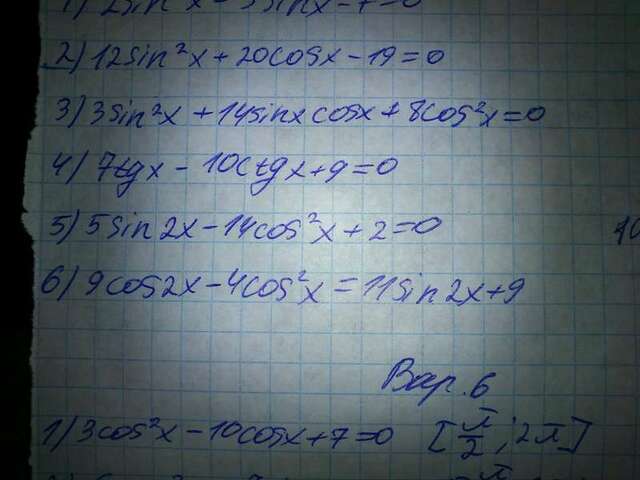 1) 2sin²x - 5sinx - 7 = 0
2) 12sin²x + 20cosx - 19 = 0
3) 3sin²x + 14sinxcosx + 8cos²x = 0
4) 7tgx - 10ctgx + 9 = 0
5) 5sin2x - 14cos²x + 2 = 0
6) 9cos2x - 4cos²x = 11sin2x + 9
Вар. 6
1) 3cos²x - 10cosx + 7 = 0 [π/2; 2π]